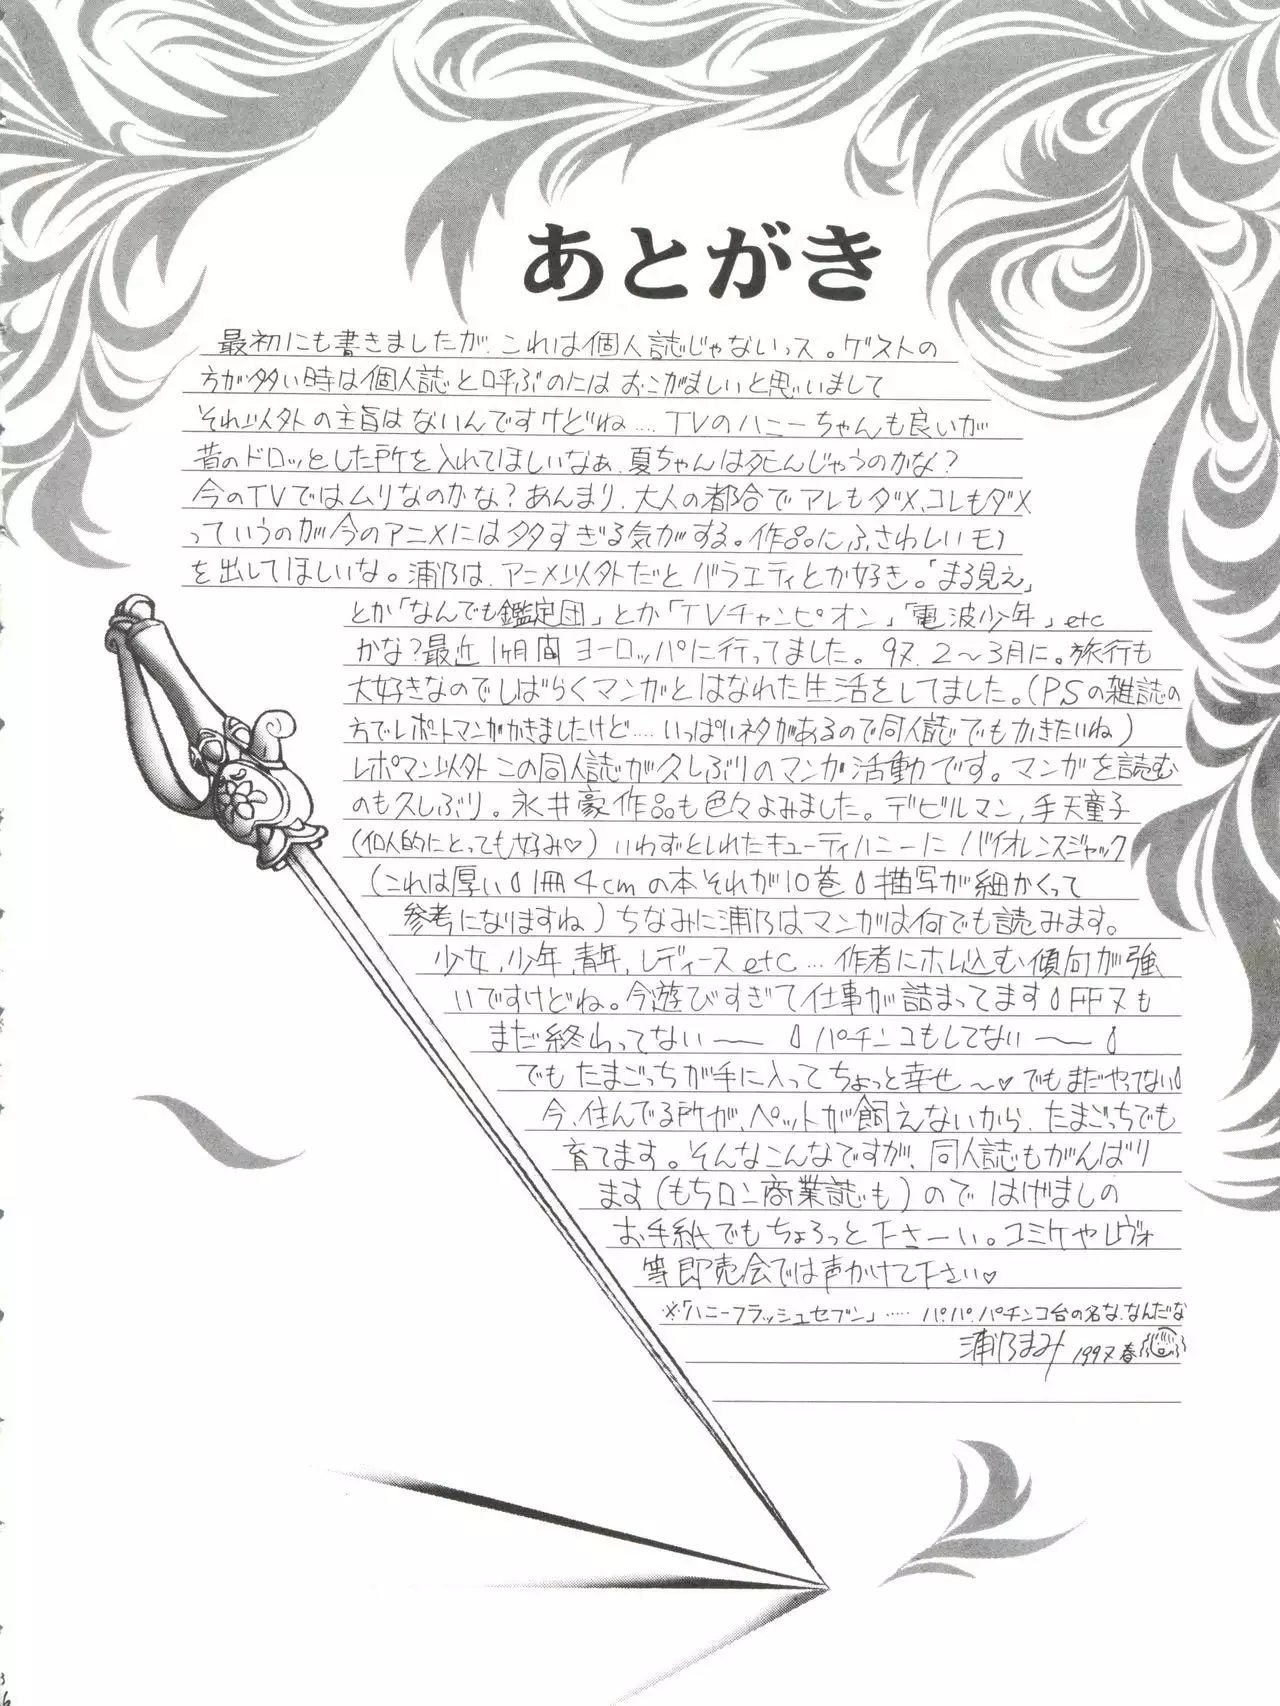 あとがき
最初にも書きましたが、これは個人誌じゃないっス。ゲストの
方が多い時は個人誌と呼ぶのにはおこがましいと思いまして
それ以外の主旨はないんですけどね……TVのハニーちゃんも良いが
昔のドロッとした所を入れてほしいなぁ、夏ちゃんは死んじゃうのかな?
今のTVではムリなのかな?あんまり、大人の都合でアレもダメ、コレもダメ
っていうのが今のアニメには多すぎる気がする。作品にふさわしいモノ
を出してほしいな。浦乃は、アニメ以外だとバラエティとか好き。「まる見え」
とか「なんでも鑑定団」とか「TVチャンピオン」「電波少年」etc
かな?最近1ヶ月間ヨーロッパに行ってました。97.2〜3月に。旅行も
大好きなのでしばらくマンガとはなれた生活をしてました。(PSの雑誌の
方でレポートマンガかきましたけど……いっぱいネタがあるので同人誌でもかきたいね)
レポマン以外この同人誌が久しぶりのマンガ活動です。マンガを読む
のも久しぶり。永井豪作品も色々よみました。デビルマン,手天童子
(個人的にとっても好み♡)いわずとしれたキューティハニーにバイオレンスジャック
(これは厚い 1冊4cmの本それが10巻 描写が細かくって
参考になりますね)ちなみに浦乃はマンガは何でも読みます。
少女,少年,青年,レディースetc…作者にホレ込む傾向が強
いですけどね。今遊びすぎて仕事が詰まってます FF7も
まだ終わってない〜 パチンコもしてない〜
でもたまごっちが手に入ってちょっと幸せ〜♡でもまだやってない
今、住んでる所が、ペットが飼えないから、たまごっちでも
育てます。そんなこんなですが、同人誌もがんばり
ます(もちロン商業誌も)のではげましの
お手紙でもちょろっと下さーい。コミケやレヴォ
等即売会では声かけて下さい♡
※「ハニーフラッシュセブン」…… パ、パ、パチンコ台の名な、なんだな
浦乃まみ 1997春